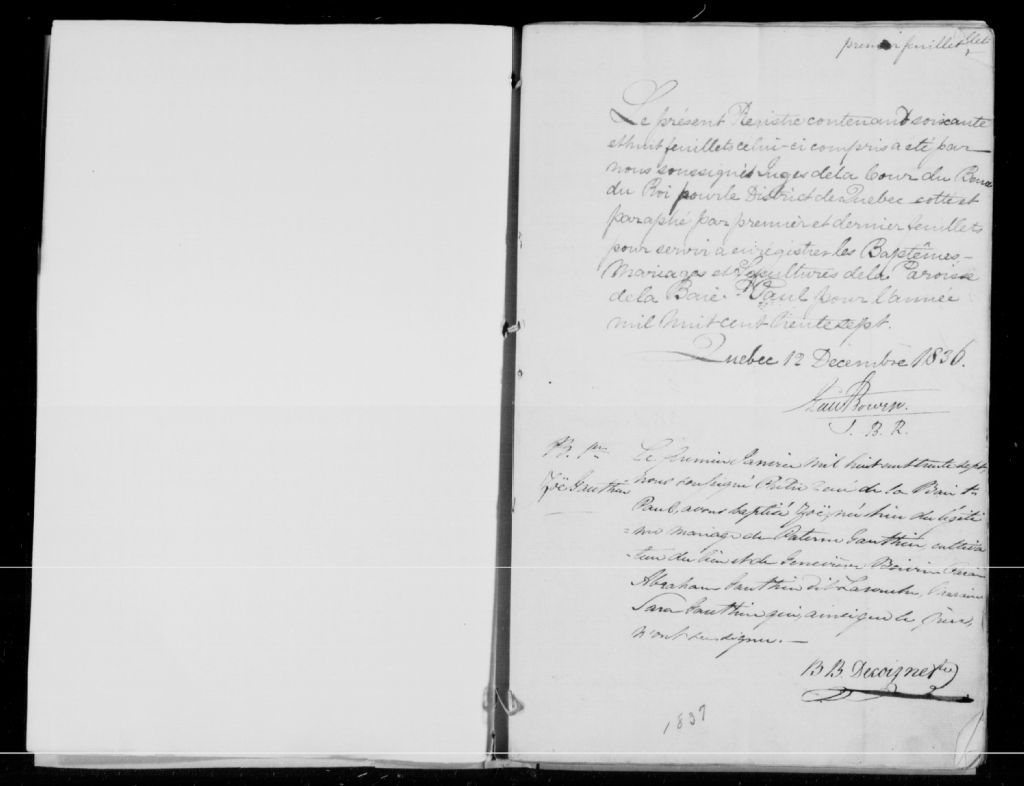 premier feuillet
Le présent Registre contenant soixante
et huit feuillets celui-ci compris a été par
nous soussignés Juges de la Cour du Banc
du Roi pour le District de Quebec cotté et
paraphé par premier et dernier feuillets
pour servir a enrégistrer les Baptêmes-
Mariages et Sepultures de la Paroisse
de la Baie St Paul pour l'année
mil huit cent trente sept.
Quebec 12 Décembre 1836.
Bowen.
J. B. R.
B. 1er
Zoë Gauthier
Le premier Janvier mil huit cent trente sept
nous soussigné Prêtre Curé de la Baie St
Paul, avons baptisé Zoë, née hier du légiti
-me mariage de Paterne Gauthier cultiva
-teur du lieu et de Geneviève Boivin Parain
Abraham Gauthier dit Larouche, Maraine
Sara Gauthier qui, ainsi que le père,
n'ont su signer. —
B B. Decoigne Ptre
1837